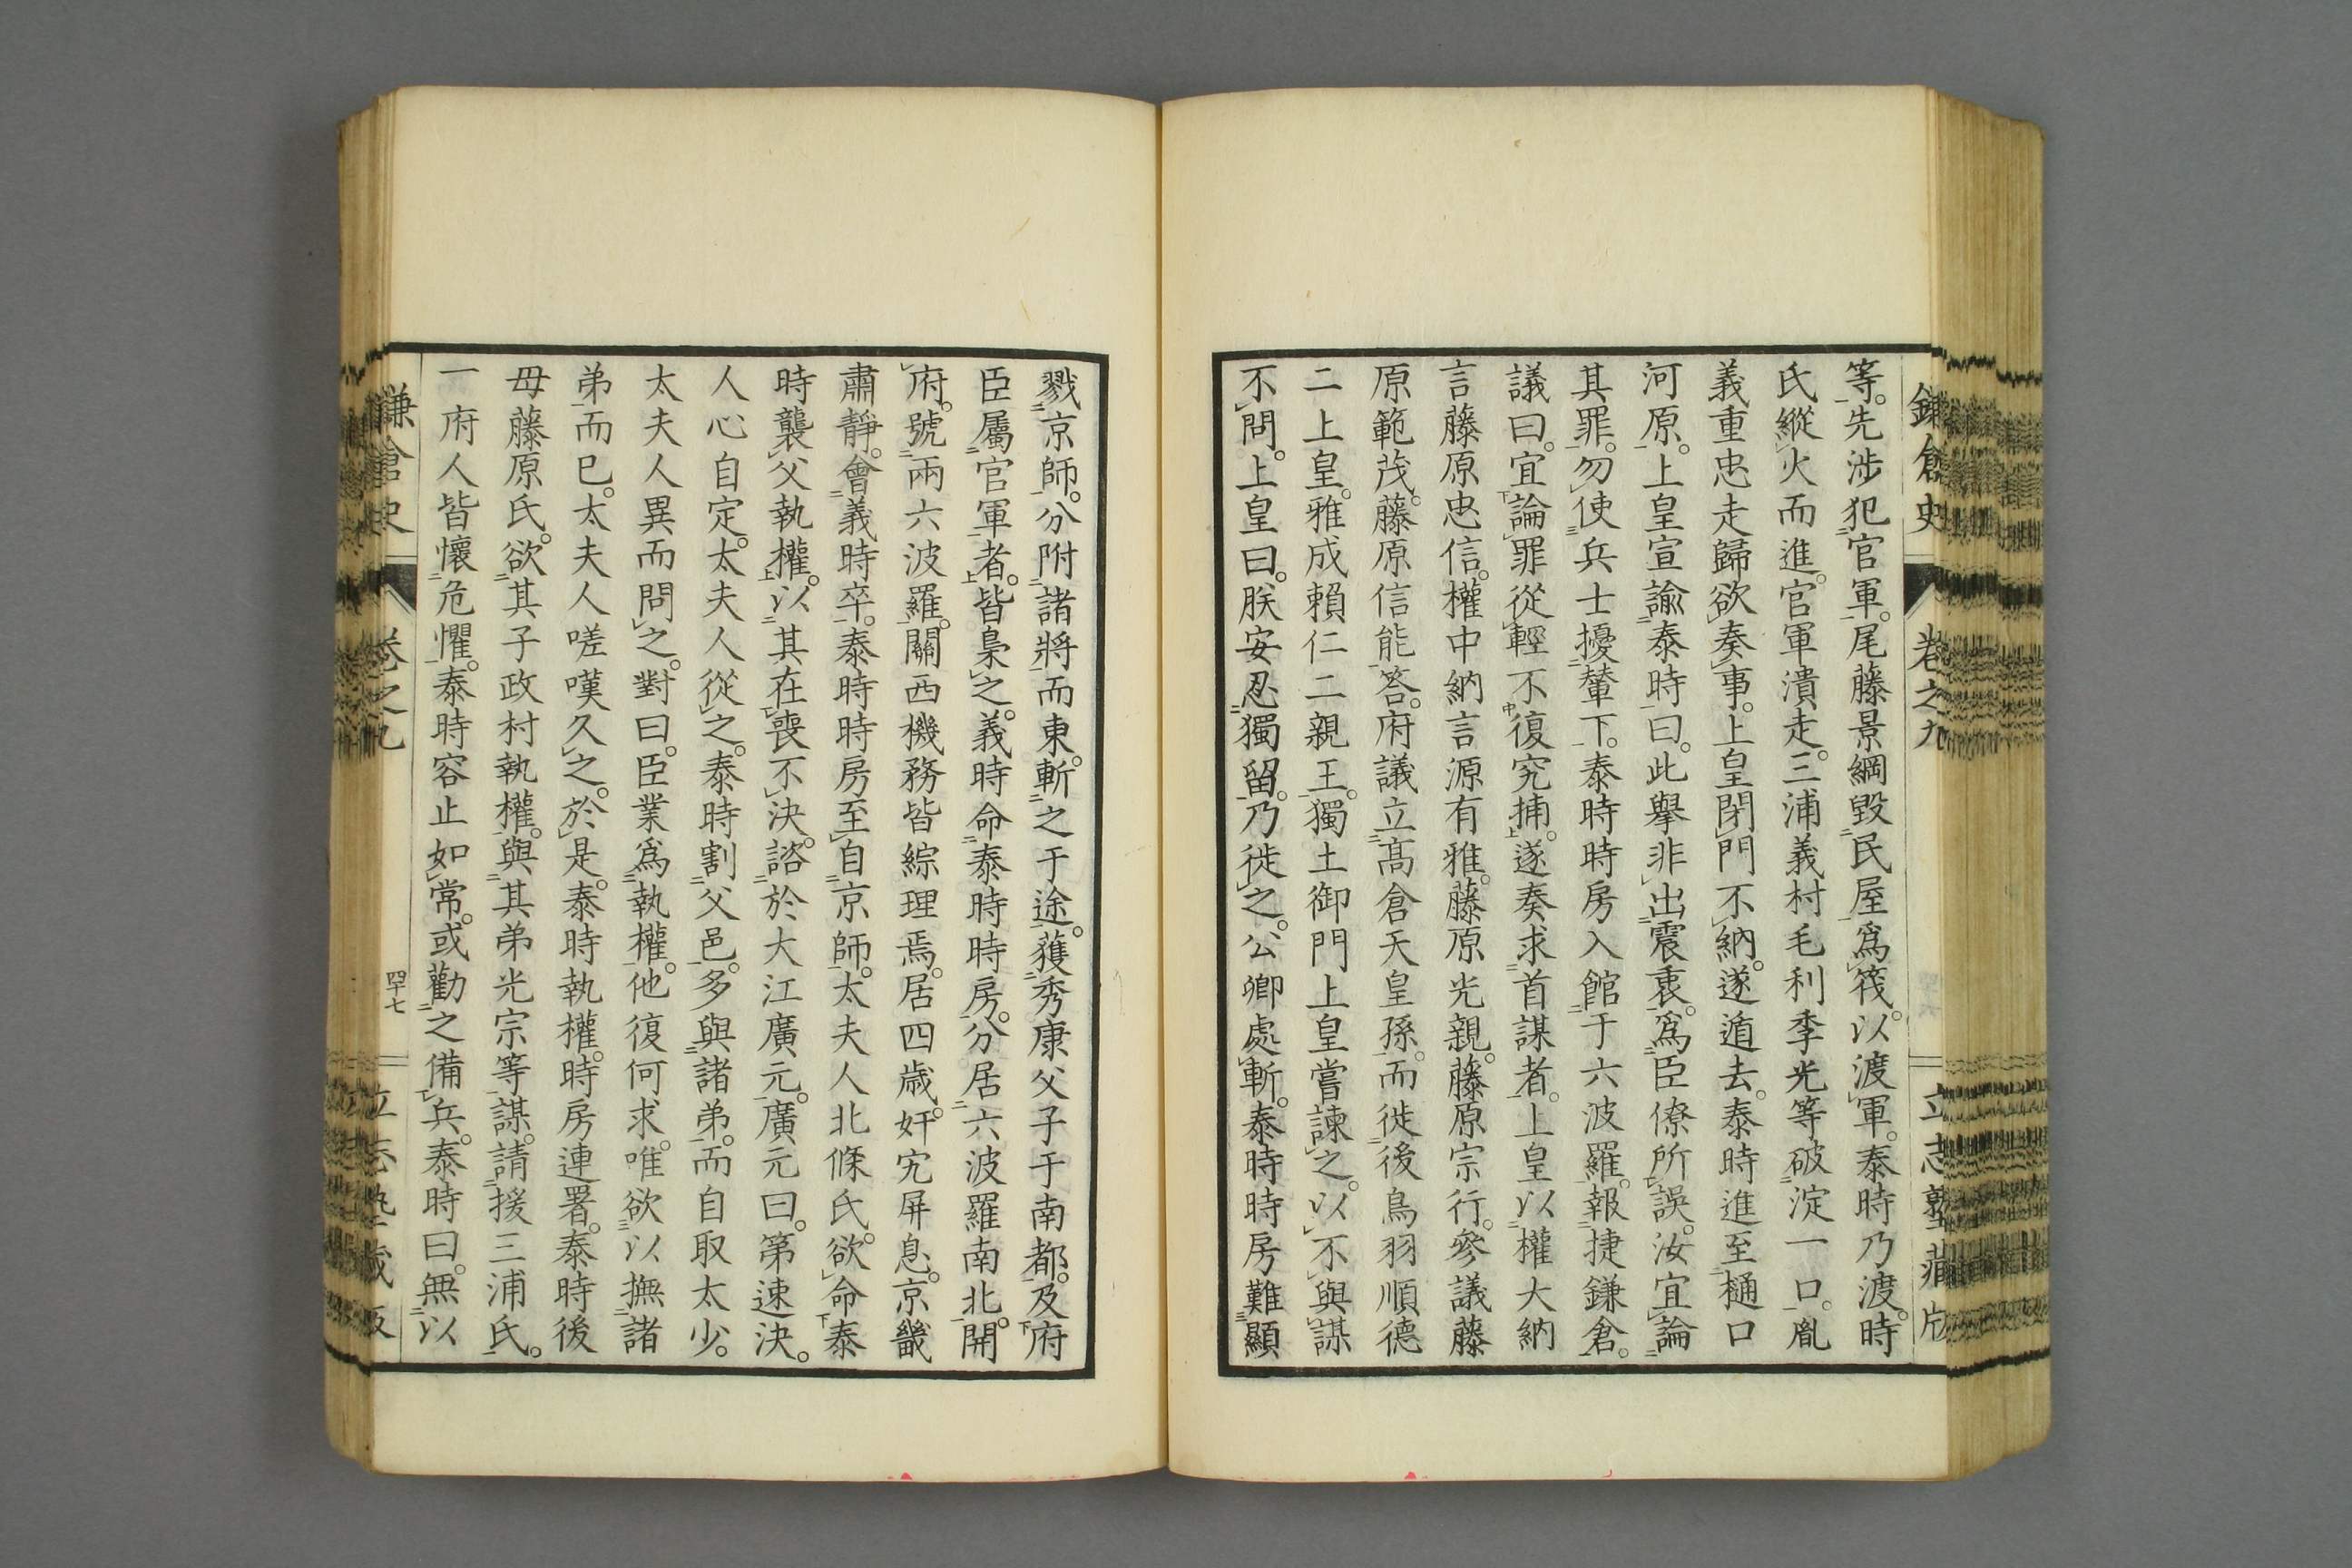 鎌倉史 卷之九 立志塾藏版
等。先涉犯官軍。尾藤景綱毀民屋爲筏。以渡軍。泰時乃渡。時
氏縱火而進。官軍潰走。三浦義村毛利季光等破淀一口。胤
義重忠走歸欲奏事。上皇閉門不納。遂遁去。泰時進至樋口
河原。上皇宣諭泰時曰。此擧非出震衷。爲臣僚所誤。汝宜論
其罪。勿使兵士擾輦下。泰時時房入館于六波羅。報捷鎌倉。
議曰。宜論罪從輕不復究捕。遂奏求首謀者。上皇以權大納
言藤原忠信。權中納言源有雅。藤原光親。藤原宗行。參議藤
原範茂。藤原信能答。府議立高倉天皇孫。而徙後鳥羽順德
二上皇。雅成賴仁二親王。獨土御門上皇嘗諫之。以不與謀
不問。上皇曰。朕安忍獨留。乃徙之。公卿處斬。泰時時房難顯
戮京師。分附諸將而東。斬之于途。獲秀康父子于南都。及府
臣屬官軍者。皆梟之。義時命泰時時房。分居六波羅南北。開
府。號兩六波羅。關西機務皆綜理焉。居四歲。奸宄屏息。京畿
肅靜。會義時卒。泰時時房至自京師。太夫人北條氏。欲命泰
時襲父執權。以其在喪不決。諮於大江廣元。廣元曰。第速決。
人心自定。太夫人從之。泰時割父邑。多與諸弟。而自取太少。
太夫人異而問之。對曰。臣業爲執權。他復何求。唯欲以撫諸
弟而已。太夫人嗟嘆久之。於是。泰時執權。時房連署。泰時後
母藤原氏。欲其子政村執權。與其弟光宗等謀。請援三浦氏。
一府人皆懷危懼。泰時容止如常。或勸之備兵。泰時曰。無以
鎌倉史 卷之九 四十七 立志塾藏版